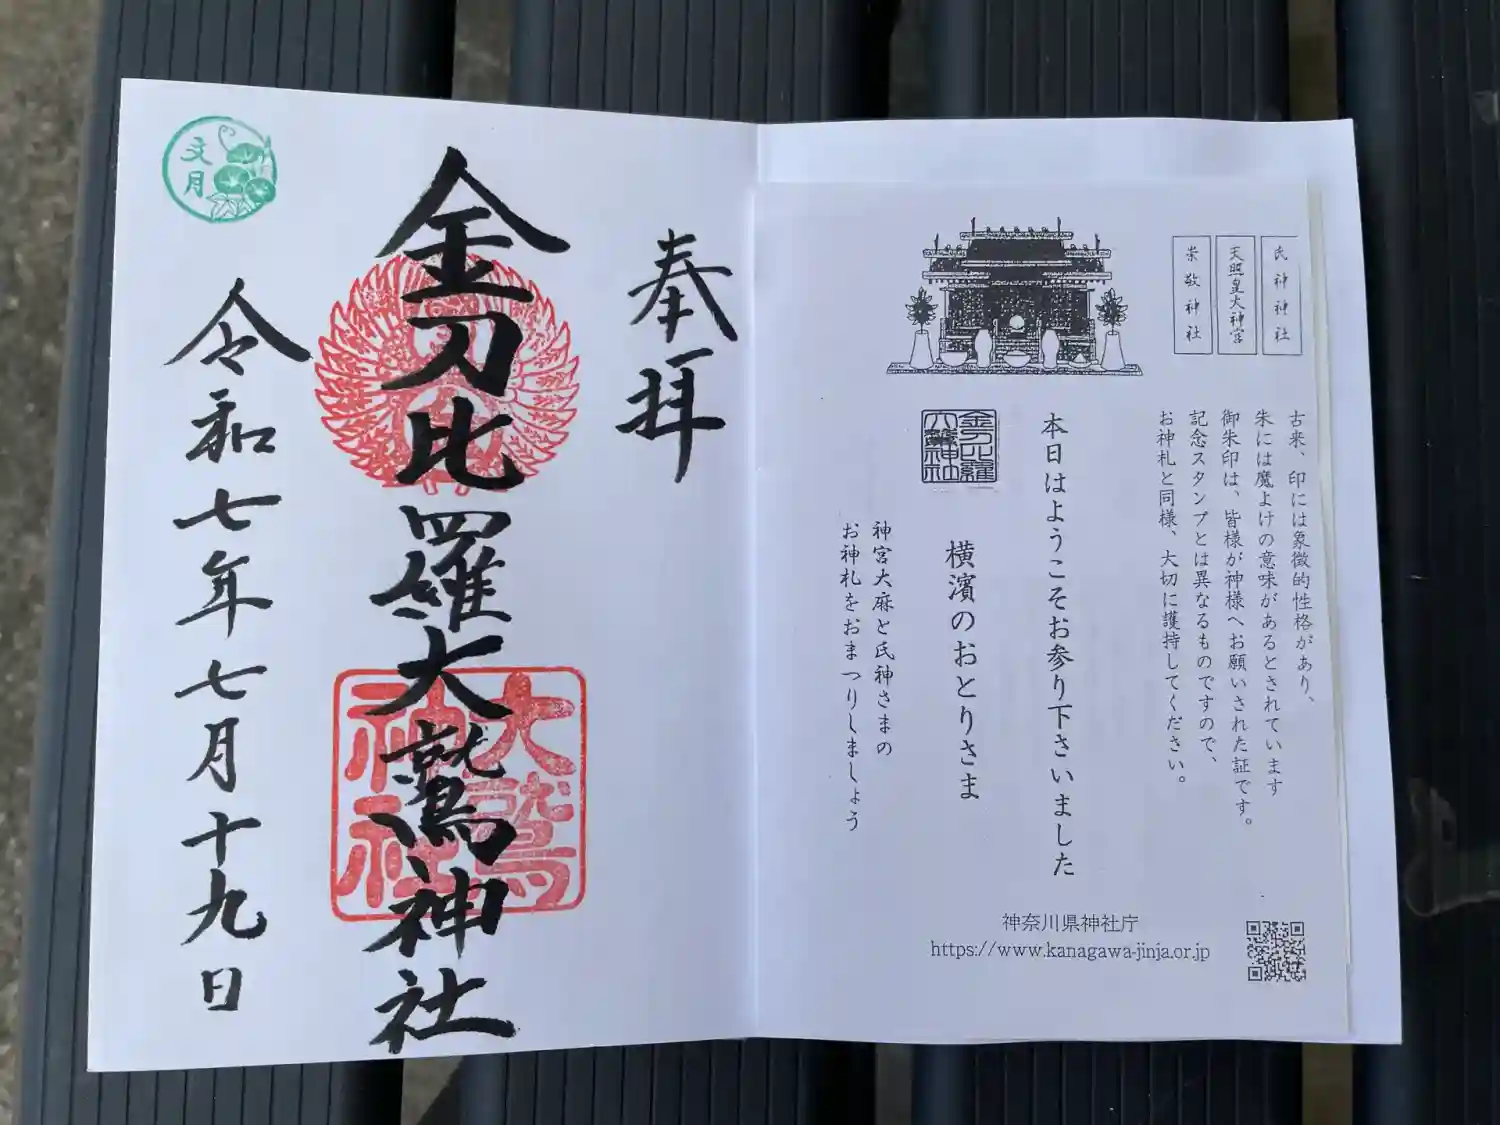 奉拝
金刀比羅大鷲神社
大鷲
神社
令和七年七月十九日
文月
氏神神社
天照皇大神宮
崇敬神社
古来、印には象徴的性格があり、
朱には魔よけの意味があるとされています
御朱印は、皆様が神様へお願いされた証です。
記念スタンプとは異なるものですので、
お神札と同様、大切に護持してください。
本日はようこそお参り下さいました
金刀比羅
大鷲神社
横濱のおとりさま
神宮大麻と氏神さまの
お神札をおまつりしましょう
神奈川県神社庁
https://www.kanagawa-jinja.or.jp